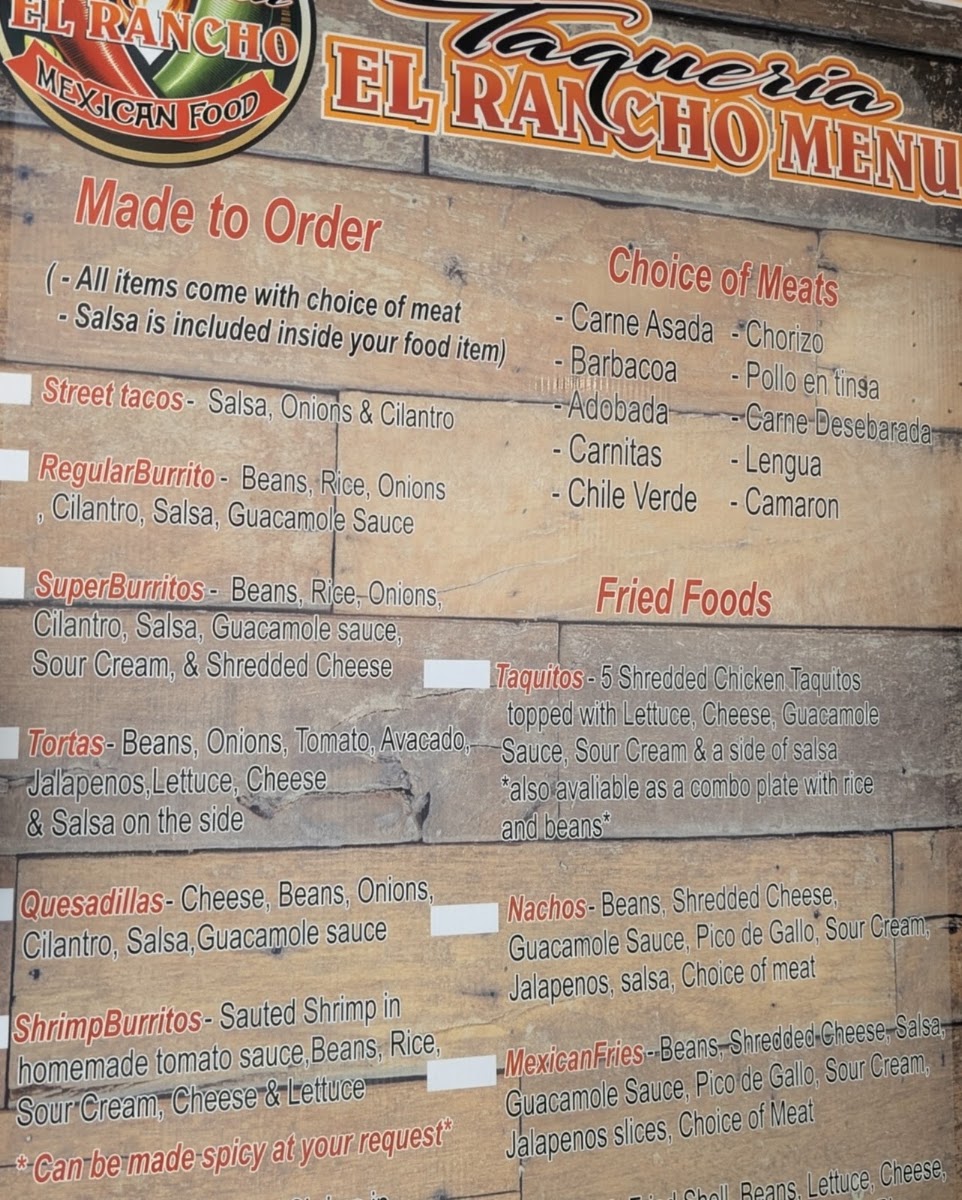 EL RANCHO
MEXICAN FOOD
Taqueria
EL RANCHO MENU
Made to Order
( - All items come with choice of meat
- Salsa is included inside your food item)
Street tacos - Salsa, Onions & Cilantro
RegularBurrito - Beans, Rice, Onions
, Cilantro, Salsa, Guacamole Sauce
SuperBurritos - Beans, Rice, Onions,
Cilantro, Salsa, Guacamole sauce,
Sour Cream, & Shredded Cheese
Tortas - Beans, Onions, Tomato, Avacado,
Jalapenos,Lettuce, Cheese
& Salsa on the side
Quesadillas - Cheese, Beans, Onions,
Cilantro, Salsa,Guacamole sauce
ShrimpBurritos - Sauted Shrimp in
homemade tomato sauce,Beans, Rice,
Sour Cream, Cheese & Lettuce
* Can be made spicy at your request*
Choice of Meats
- Carne Asada
- Barbacoa
- Adobada
- Carnitas
- Chile Verde
- Chorizo
- Pollo en tinsa
- Carne Desebarada
- Lengua
- Camaron
Fried Foods
Taquitos - 5 Shredded Chicken Taquitos
topped with Lettuce, Cheese, Guacamole
Sauce, Sour Cream & a side of salsa
*also avaliable as a combo plate with rice
and beans*
Nachos - Beans, Shredded Cheese,
Guacamole Sauce, Pico de Gallo, Sour Cream,
Jalapenos, salsa, Choice of meat
MexicanFries - Beans, Shredded Cheese, Salsa,
Guacamole Sauce, Pico de Gallo, Sour Cream,
Jalapenos slices, Choice of Meat
Shell, Beans, Lettuce, Cheese,